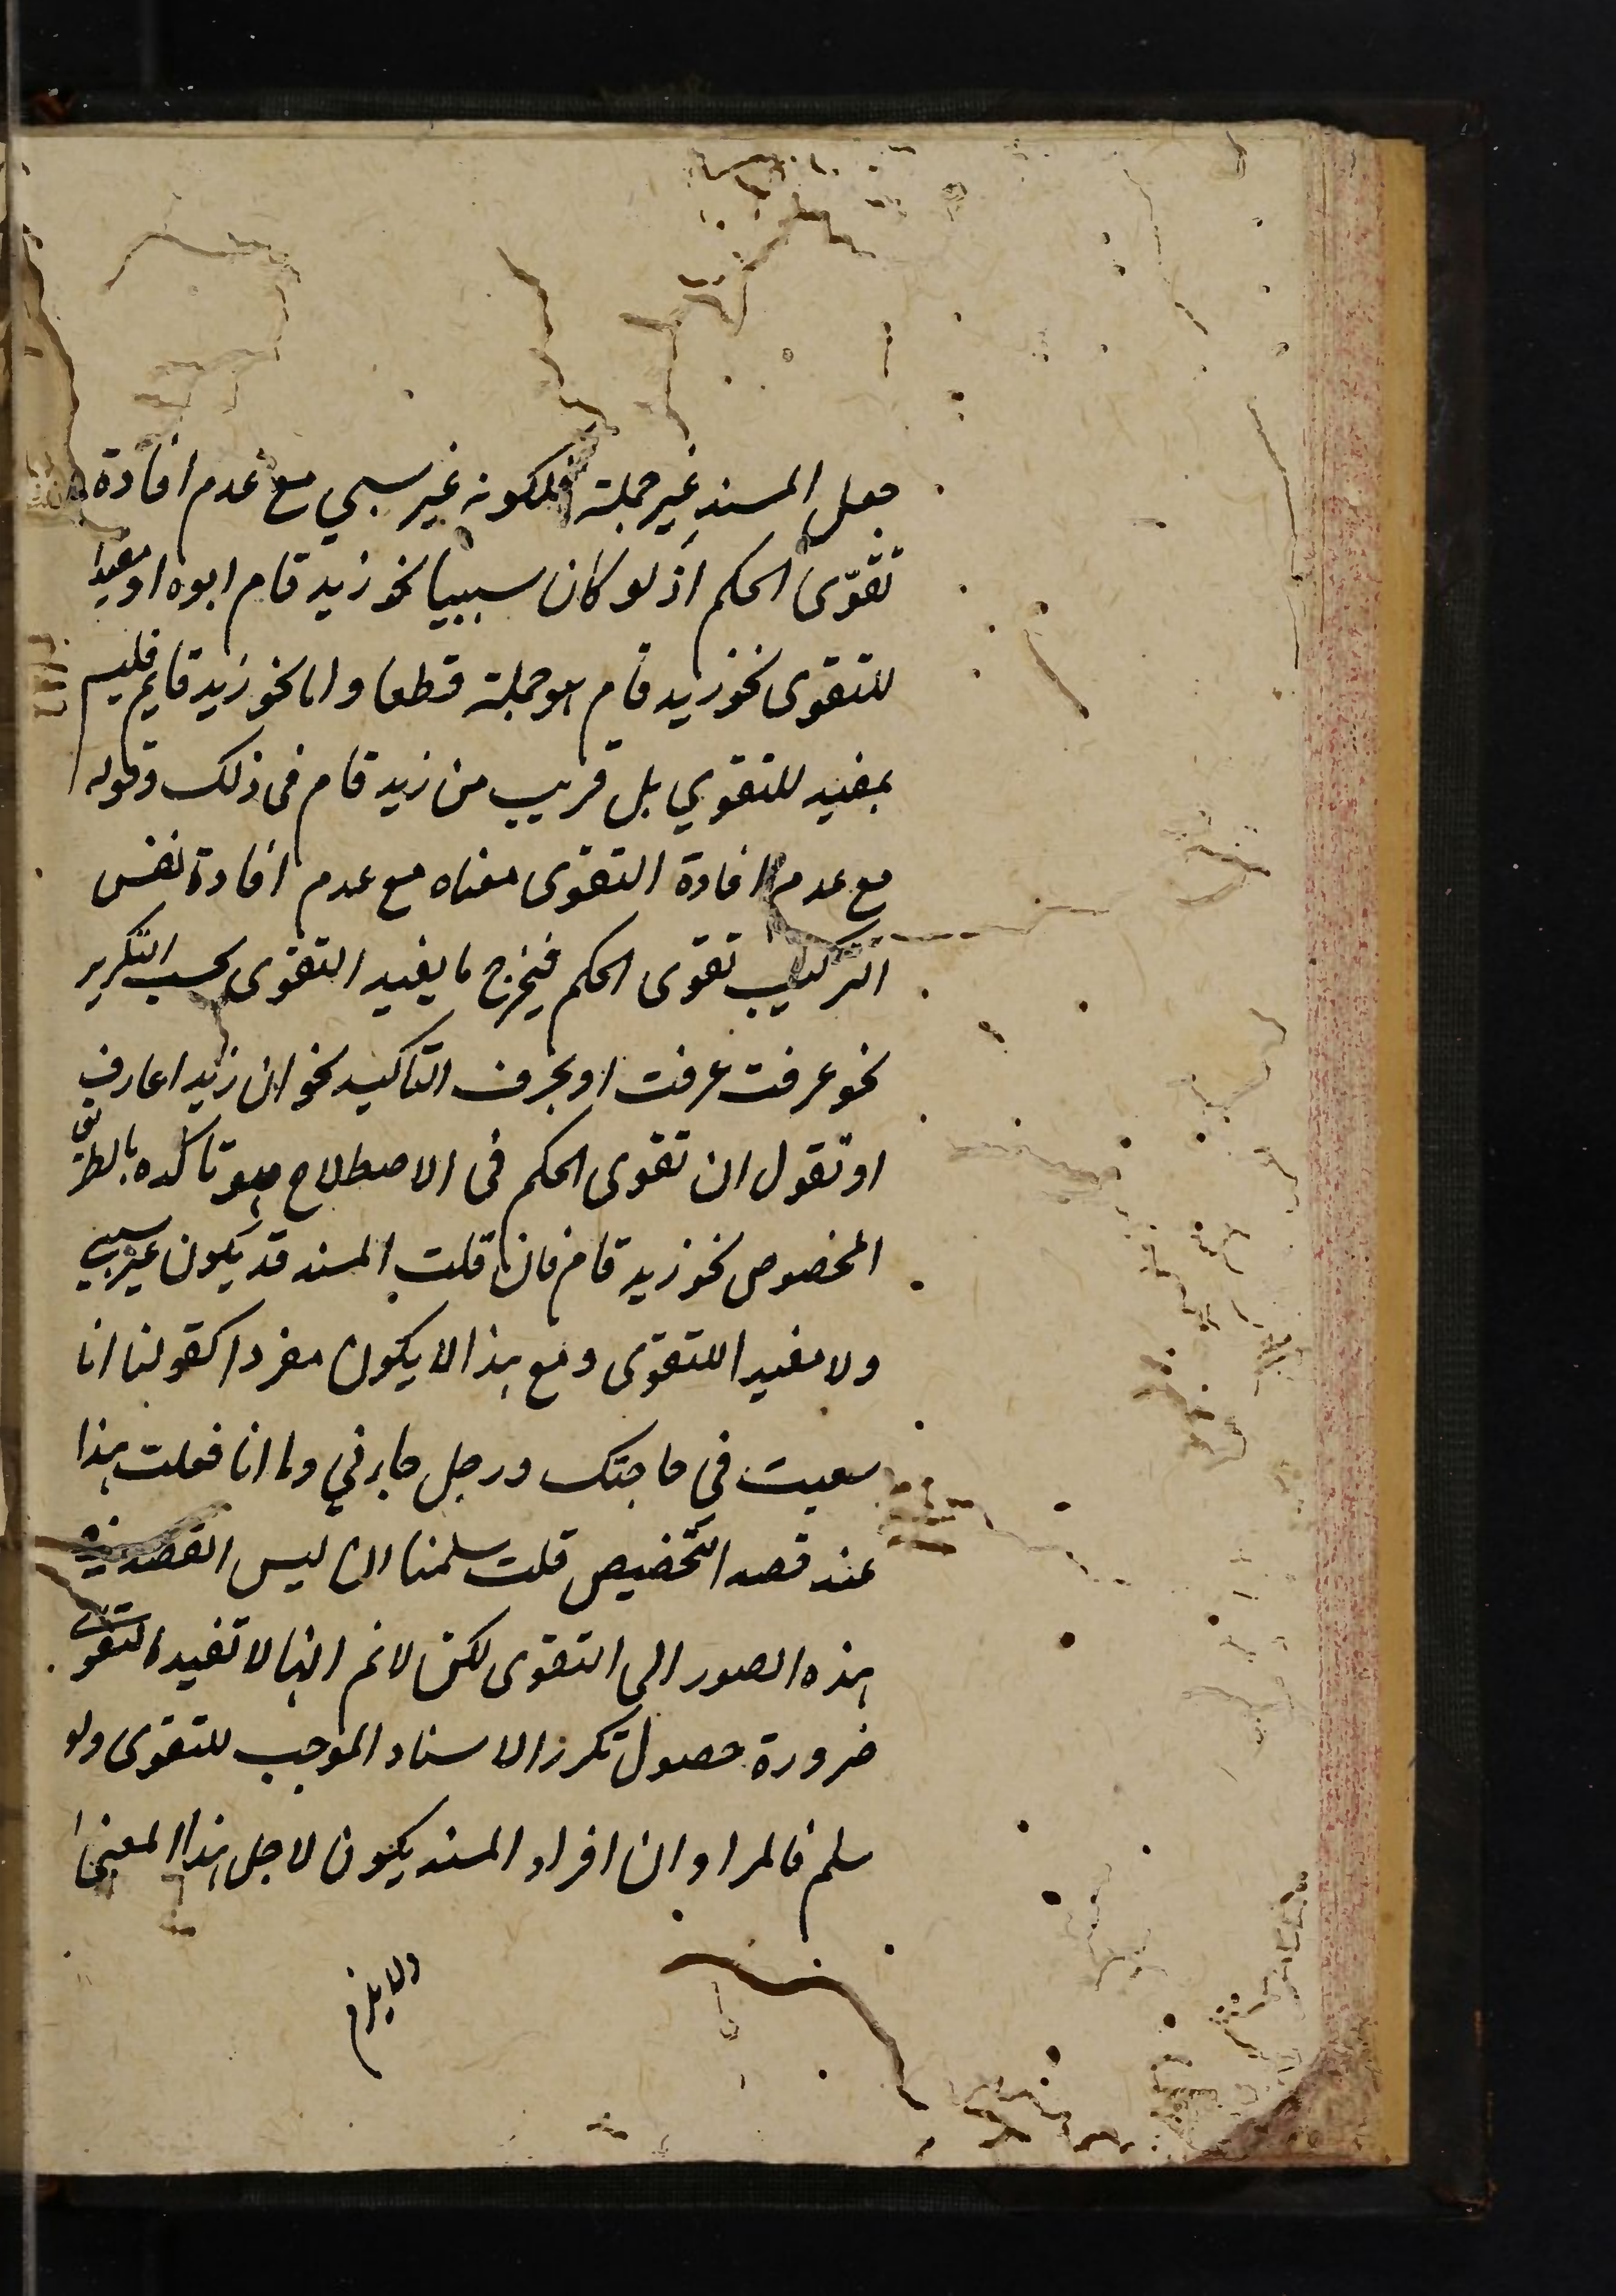 جعل المسند غير جملة فلكونه غير سببي مع عدم افادة
تقوّى الحكم اذ لو كان سببيا نحو زيد قام ابوه او مفيدا
للتقوى نحو زيد قام هو جملة قطعا واما نحو زيد قايم فليس
بمفيد للتقوي بل قريب من زيد قام فى ذلك وقوله
مع عدم افادة التقوى معناه مع عدم افادة نفس
التركيب تقوى الحكم فيخرج ما يفيد التقوى بحسب التكرير
نحو عرفت عرفت او بحرف التاكيد نحو ان زيدا عارف
او تقول ان تقوى الحكم فى الاصطلاح هو تاكده بالطريق
المخصوص نحو زيد قام فان قلت المسند قد يكون غير سببي
ولا مفيدا للتقوى ومع هذا لا يكون مفردا كقولنا انا
سعيت في حاجتك ورجل جاءني وما انا فعلت هذا
عند قصد التخصيص قلت سلمنا ان ليس القصد في
هذه الصور الى التقوى لكن لا نم انها لا تفيد التقوى
ضرورة حصول تكرر الاسناد الموجب للتقوى ولو
سلم فالمراد ان افراد المسند يكون لاجل هذا المعنى
ولا يلزم